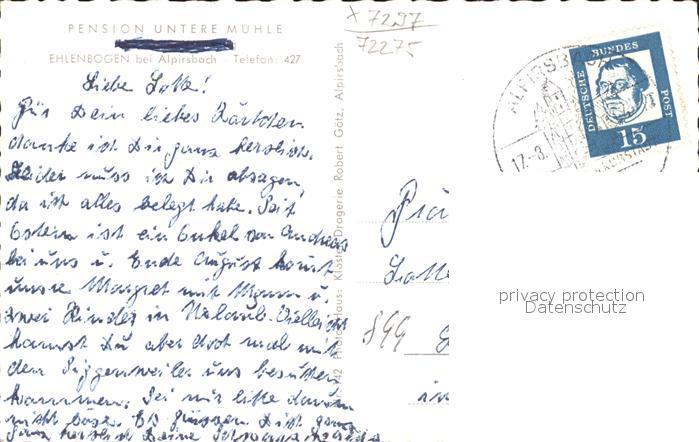 PENSION UNTERE MÜHLE
EHLENBOGEN bei Alpirsbach - Telefon: 427
+ 7297
72275
Liebe Lotte!
Für Dein liebes Kärtchen
danke ich Dir ganz herzlich.
Leider muss ich Dir absagen,
da ich alles belegt habe. Seit
Ostern ist ein Enkel von Andreas
bei uns u. Ende August kommt
unsre Margret mit Mann u.
zwei Kinder in Urlaub. Vielleicht
kannst Du aber doch mal mit
den uns besuchen
kommen. Sei mir bitte darum
nicht böse. Es grüssen Dich ganz
herzlich Deine
Photohaus: Kloster-Drogerie Robert Götz, Alpirsbach
ALPIRSBACH
17.-8.
DEUTSCHE BUNDESPOST
15
Lotte
899
privacy protection
Datenschutz